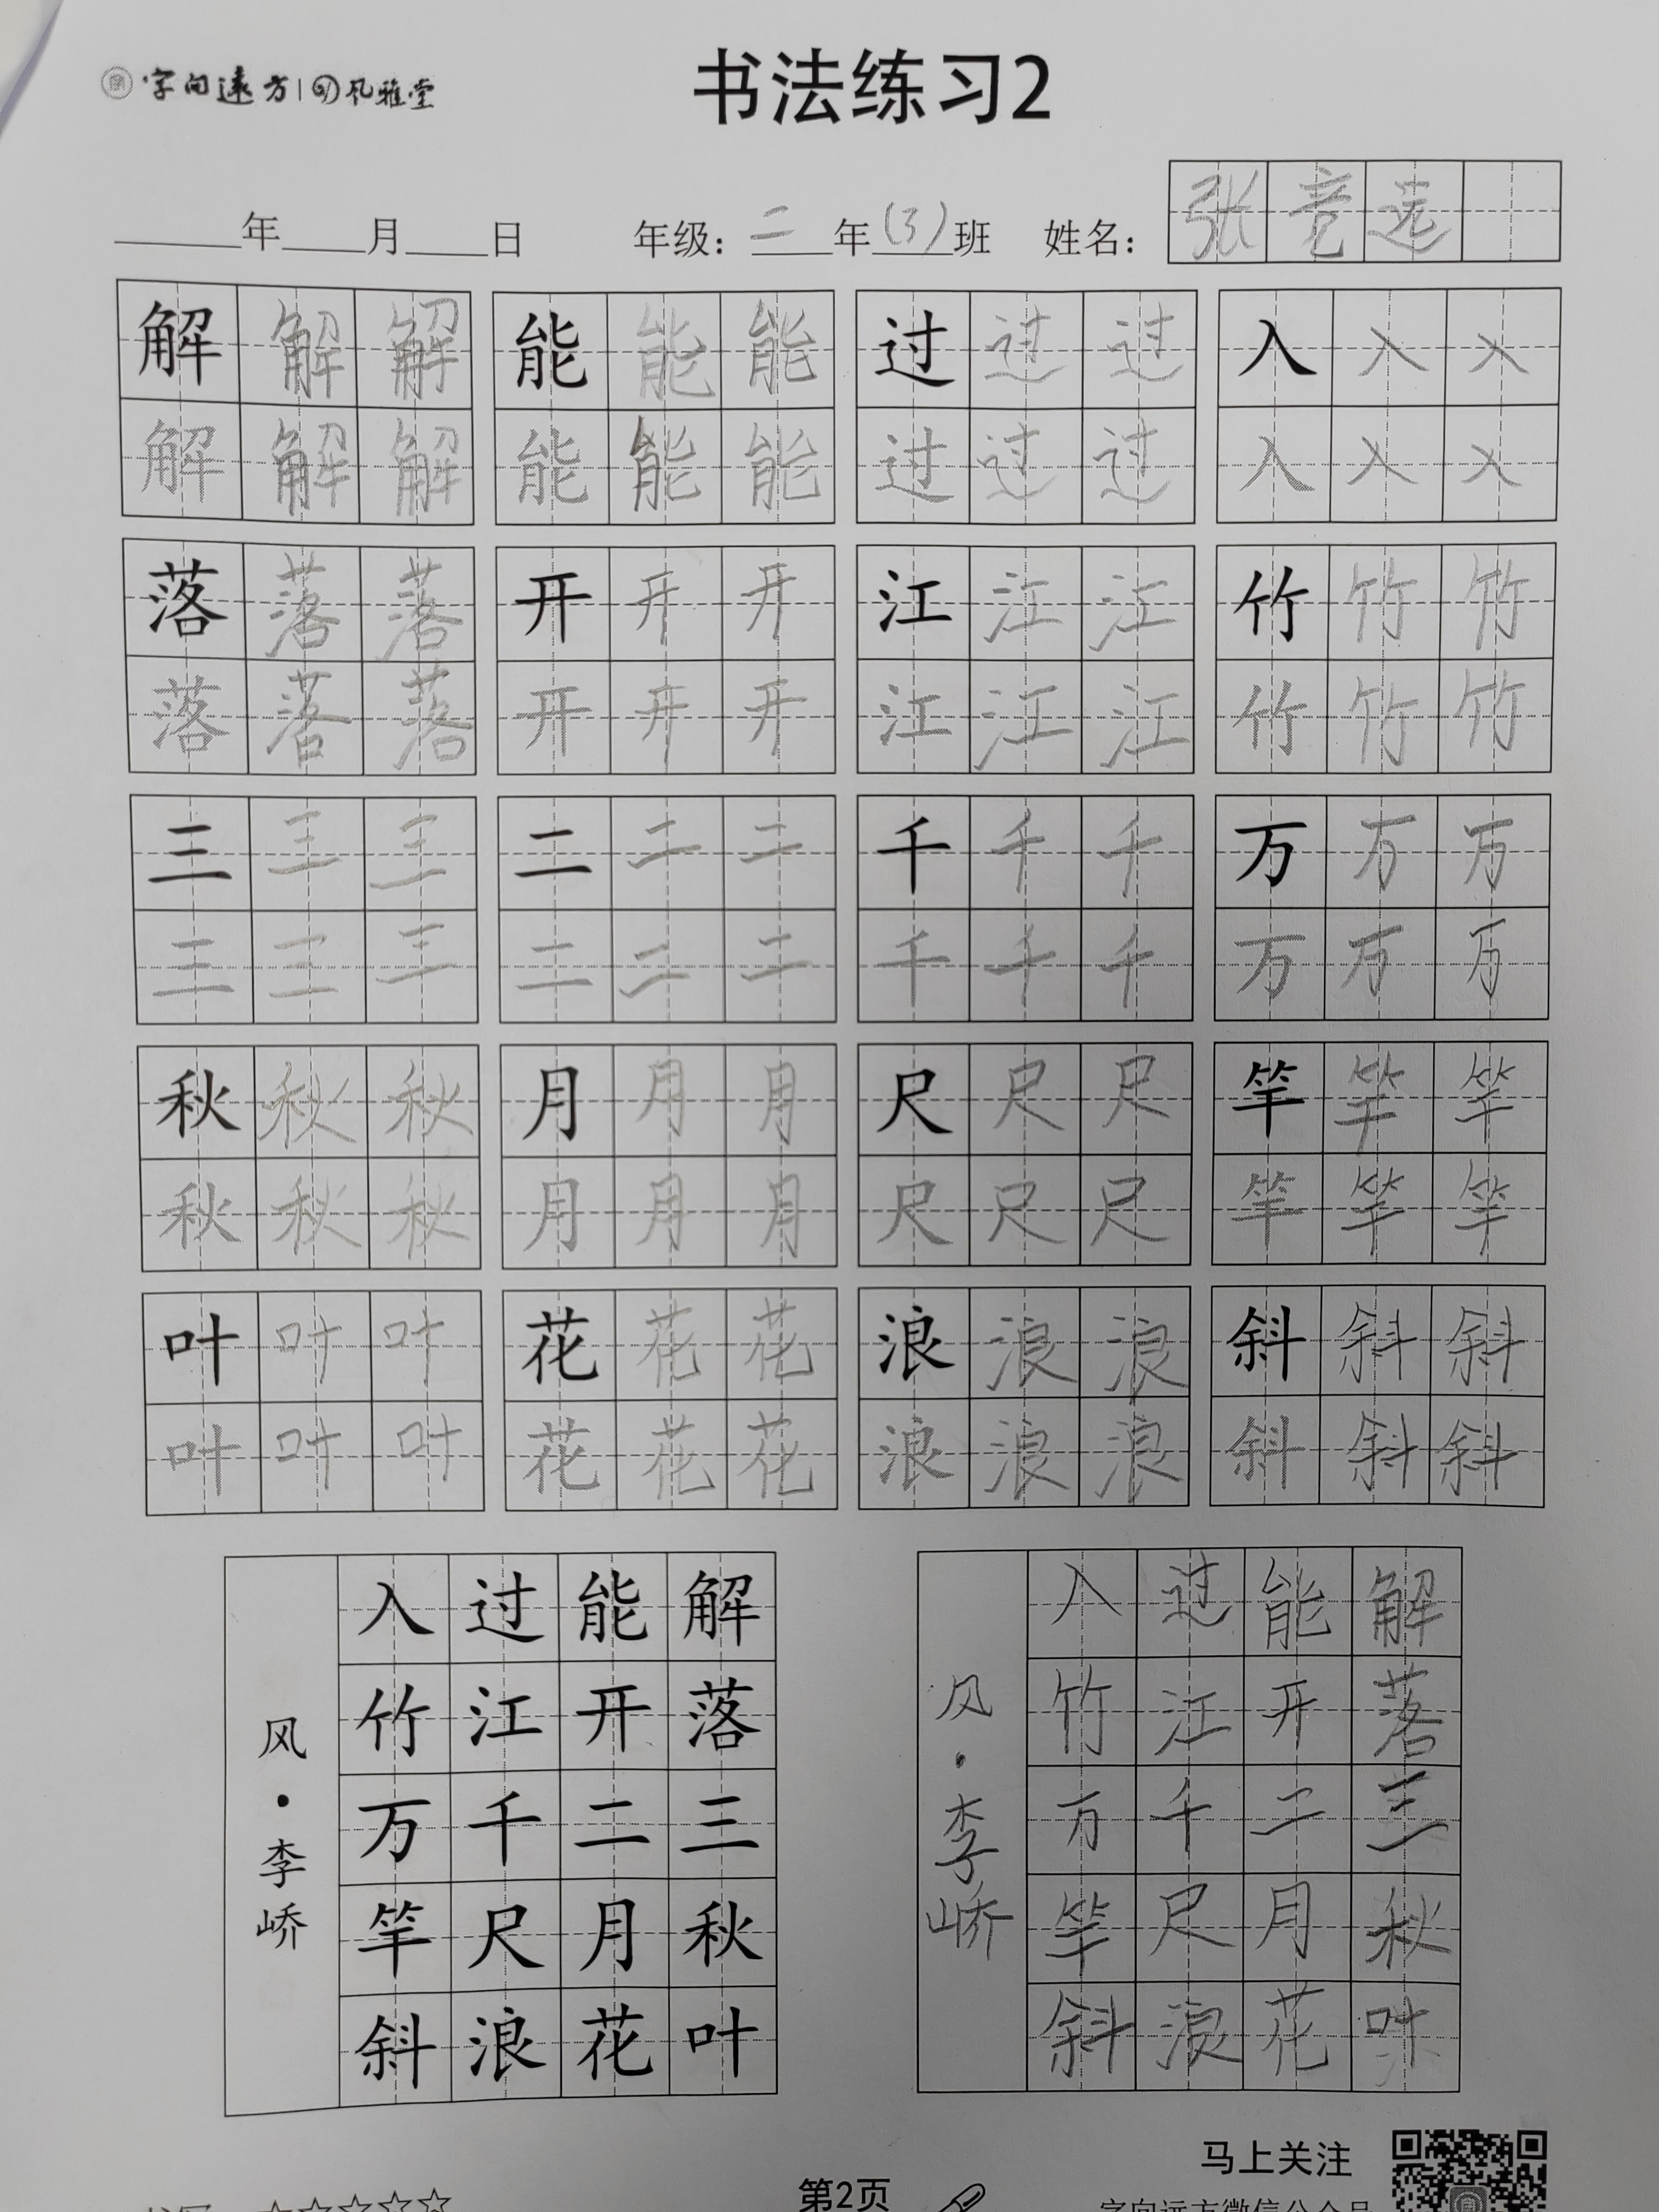 字向远方 风雅堂
书法练习2
年 月 日 年级：二年(3)班 姓名：张竞选
解解解 能能能 过过过 入入入
解解解 能能能 过过过 入入入
落落落 开开开 江江江 竹竹竹
落落落 开开开 江江江 竹竹竹
三三三 二二二 千千千 万万万
三三三 二二二 千千千 万万万
秋秋秋 月月月 尺尺尺 竿竿竿
秋秋秋 月月月 尺尺尺 竿竿竿
叶叶叶 花花花 浪浪浪 斜斜斜
叶叶叶 花花花 浪浪浪 斜斜斜
解落三秋叶
能开二月花
过江千尺浪
入竹万竿斜
风·李峤
解落三秋叶
能开二月花
过江千尺浪
入竹万竿斜
风·李峤
马上关注
第2页
字向远方微信公众号